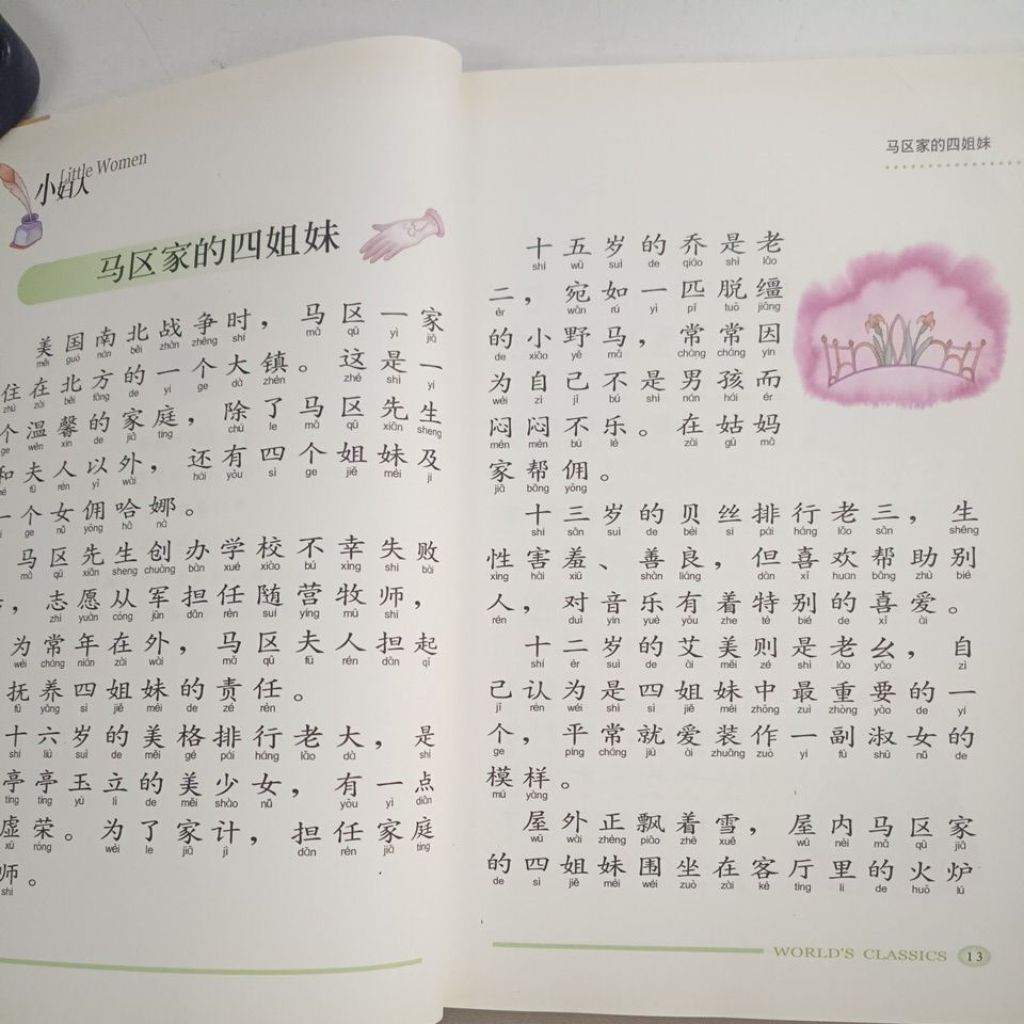 Little Women
小妇人
马区家的四姐妹
美国南北战争时，马区一家
住在北方的一个大镇。这是一
个温馨的家庭，除了马区先生
和夫人以外，还有四个姐妹及
一个女佣哈娜。
马区先生创办学校不幸失败
，志愿从军担任随营牧师，
为常年在外，马区夫人担起
抚养四姐妹的责任。
十六岁的美格排行老大，是
亭亭玉立的美少女，有一点
虚荣。为了家计，担任家庭
师。
马区家的四姐妹
十五岁的乔是老
二，宛如一匹脱缰
的小野马，常常因
为自己不是男孩而
闷闷不乐。在姑妈
家帮佣。
十三岁的贝丝排行老三，生
性害羞、善良，但喜欢帮助别
人，对音乐有着特别的喜爱。
十二岁的艾美则是老幺，自
己认为是四姐妹中最重要的一
个，平常就爱装作一副淑女的
模样。
屋外正飘着雪，屋内马区家
的四姐妹围坐在客厅里的火炉
WORLD'S CLASSICS 13